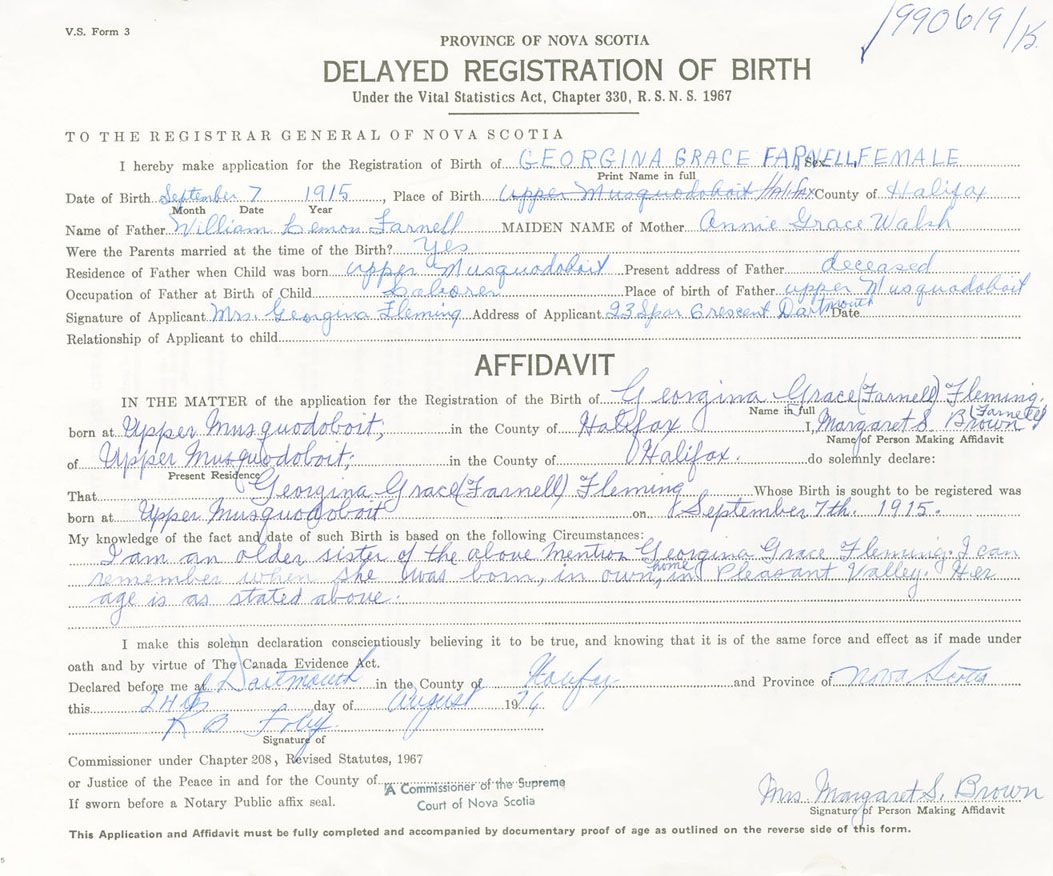 V.S. Form 3
1990619/
PROVINCE OF NOVA SCOTIA
DELAYED REGISTRATION OF BIRTH
Under the Vital Statistics Act, Chapter 330, R. S. N. S. 1967
TO THE REGISTRAR GENERAL OF NOVA SCOTIA
I hereby make application for the Registration of Birth of GEORGINA GRACE FARNELL Sex FEMALE
Print Name in full
Date of Birth September 7 1915, Place of Birth Upper Musquodoboit Halifax County of Halifax
Month Date Year
Name of Father William Lemon Farnell MAIDEN NAME of Mother Annie Grace Walsh
Were the Parents married at the time of the Birth? Yes
Residence of Father when Child was born upper Musquodoboit Present address of Father deceased
Occupation of Father at Birth of Child Laborer Place of birth of Father upper Musquodoboit
Signature of Applicant Mrs. Georgina Fleming Address of Applicant 23 Spar Crescent Dartmouth Date
Relationship of Applicant to child
AFFIDAVIT
IN THE MATTER of the application for the Registration of the Birth of Georgina Grace (Farnell) Fleming.
Name in full
born at Upper Musquodoboit, in the County of Halifax I, Margaret S. (Farnell) Brown
Name of Person Making Affidavit
of Upper Musquodoboit; in the County of Halifax. do solemnly declare:
Present Residence
That Georgina Grace (Farnell) Fleming Whose Birth is sought to be registered was
born at Upper Musquodoboit on September 7th. 1915.
My knowledge of the fact and date of such Birth is based on the following Circumstances:
I am an older sister of the above mention Georgina Grace Fleming. I can
remember when she was born, in own home, in Pleasant Valley. Her
age is as stated above.
I make this solemn declaration conscientiously believing it to be true, and knowing that it is of the same force and effect as if made under
oath and by virtue of The Canada Evidence Act.
Declared before me at Dartmouth in the County of Halifax and Province of Nova Scotia
this 24th day of August 1976
R B
Signature of
Commissioner under Chapter 208, Revised Statutes, 1967
or Justice of the Peace in and for the County of
A Commissioner of the Supreme
Court of Nova Scotia
If sworn before a Notary Public affix seal.
Mrs. Margaret S. Brown
Signature of Person Making Affidavit
This Application and Affidavit must be fully completed and accompanied by documentary proof of age as outlined on the reverse side of this form.